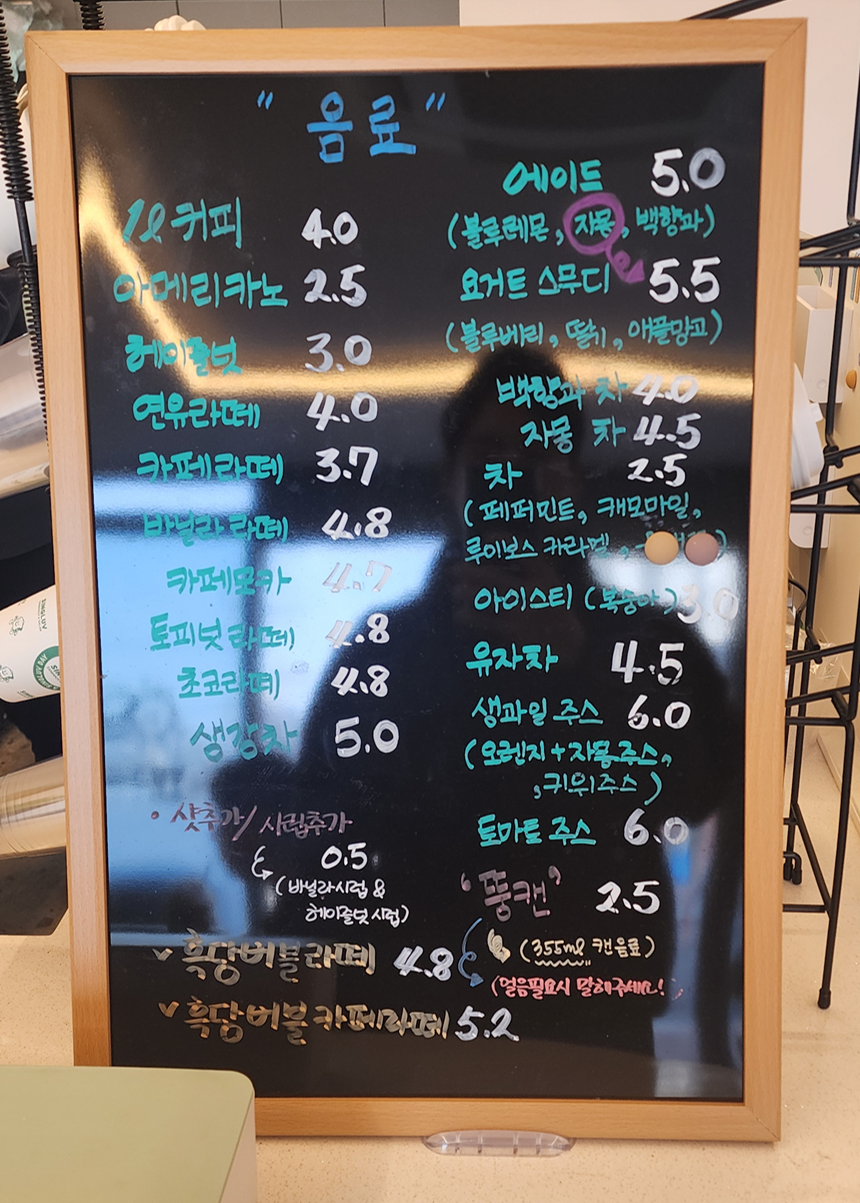 " 음료 "
1ℓ 커피 4.0
아메리카노 2.5
헤이즐넛 3.0
연유라떼 4.0
카페라떼 3.7
바닐라 라떼 4.8
카페모카 4.7
토피넛 라떼 4.8
초코라떼 4.8
생강차 5.0
• 샷추가/시럽추가
0.5
(바닐라시럽 &
헤이즐넛 시럽)
✓ 흑당버블라떼 4.8
✓ 흑당버블 카페라떼 5.2
에이드 5.0
(블루레몬, 자몽, 백향과)
요거트 스무디 5.5
(블루베리, 딸기, 애플망고)
백향과 차 4.0
자몽 차 4.5
차 2.5
(페퍼민트, 캐모마일,
루이보스 카라멜,
아이스티 (복숭아) 3.0
유자차 4.5
생과일 주스 6.0
(오렌지+자몽주스,
,키위주스)
토마토 주스 6.0
'뚱캔' 2.5
(355ml 캔음료)
(얼음필요시 말해주세요!)